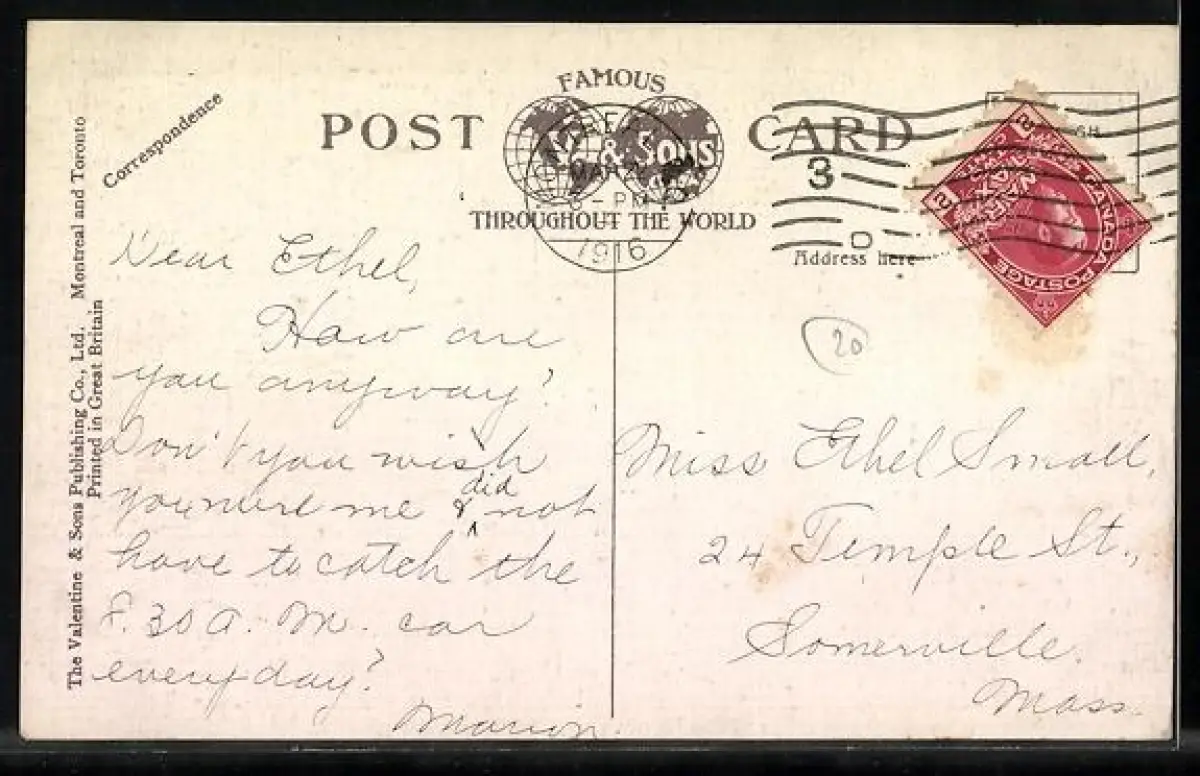 POST CARD
FAMOUS
& SONS
THROUGHOUT THE WORLD
MAR
PM
1916
3
D
Correspondence
Address here
CANADA POSTAGE
2
2
The Valentine & Sons Publishing Co., Ltd. Montreal and Toronto
Printed in Great Britain
Dear Ethel,
How are
you anyway?
Don't you wish
you were me & did not
have to catch the
8.30 A. M. car
every day?
Marion.
20
Miss Ethel Small,
24 Temple St.,
Somerville.
Mass.